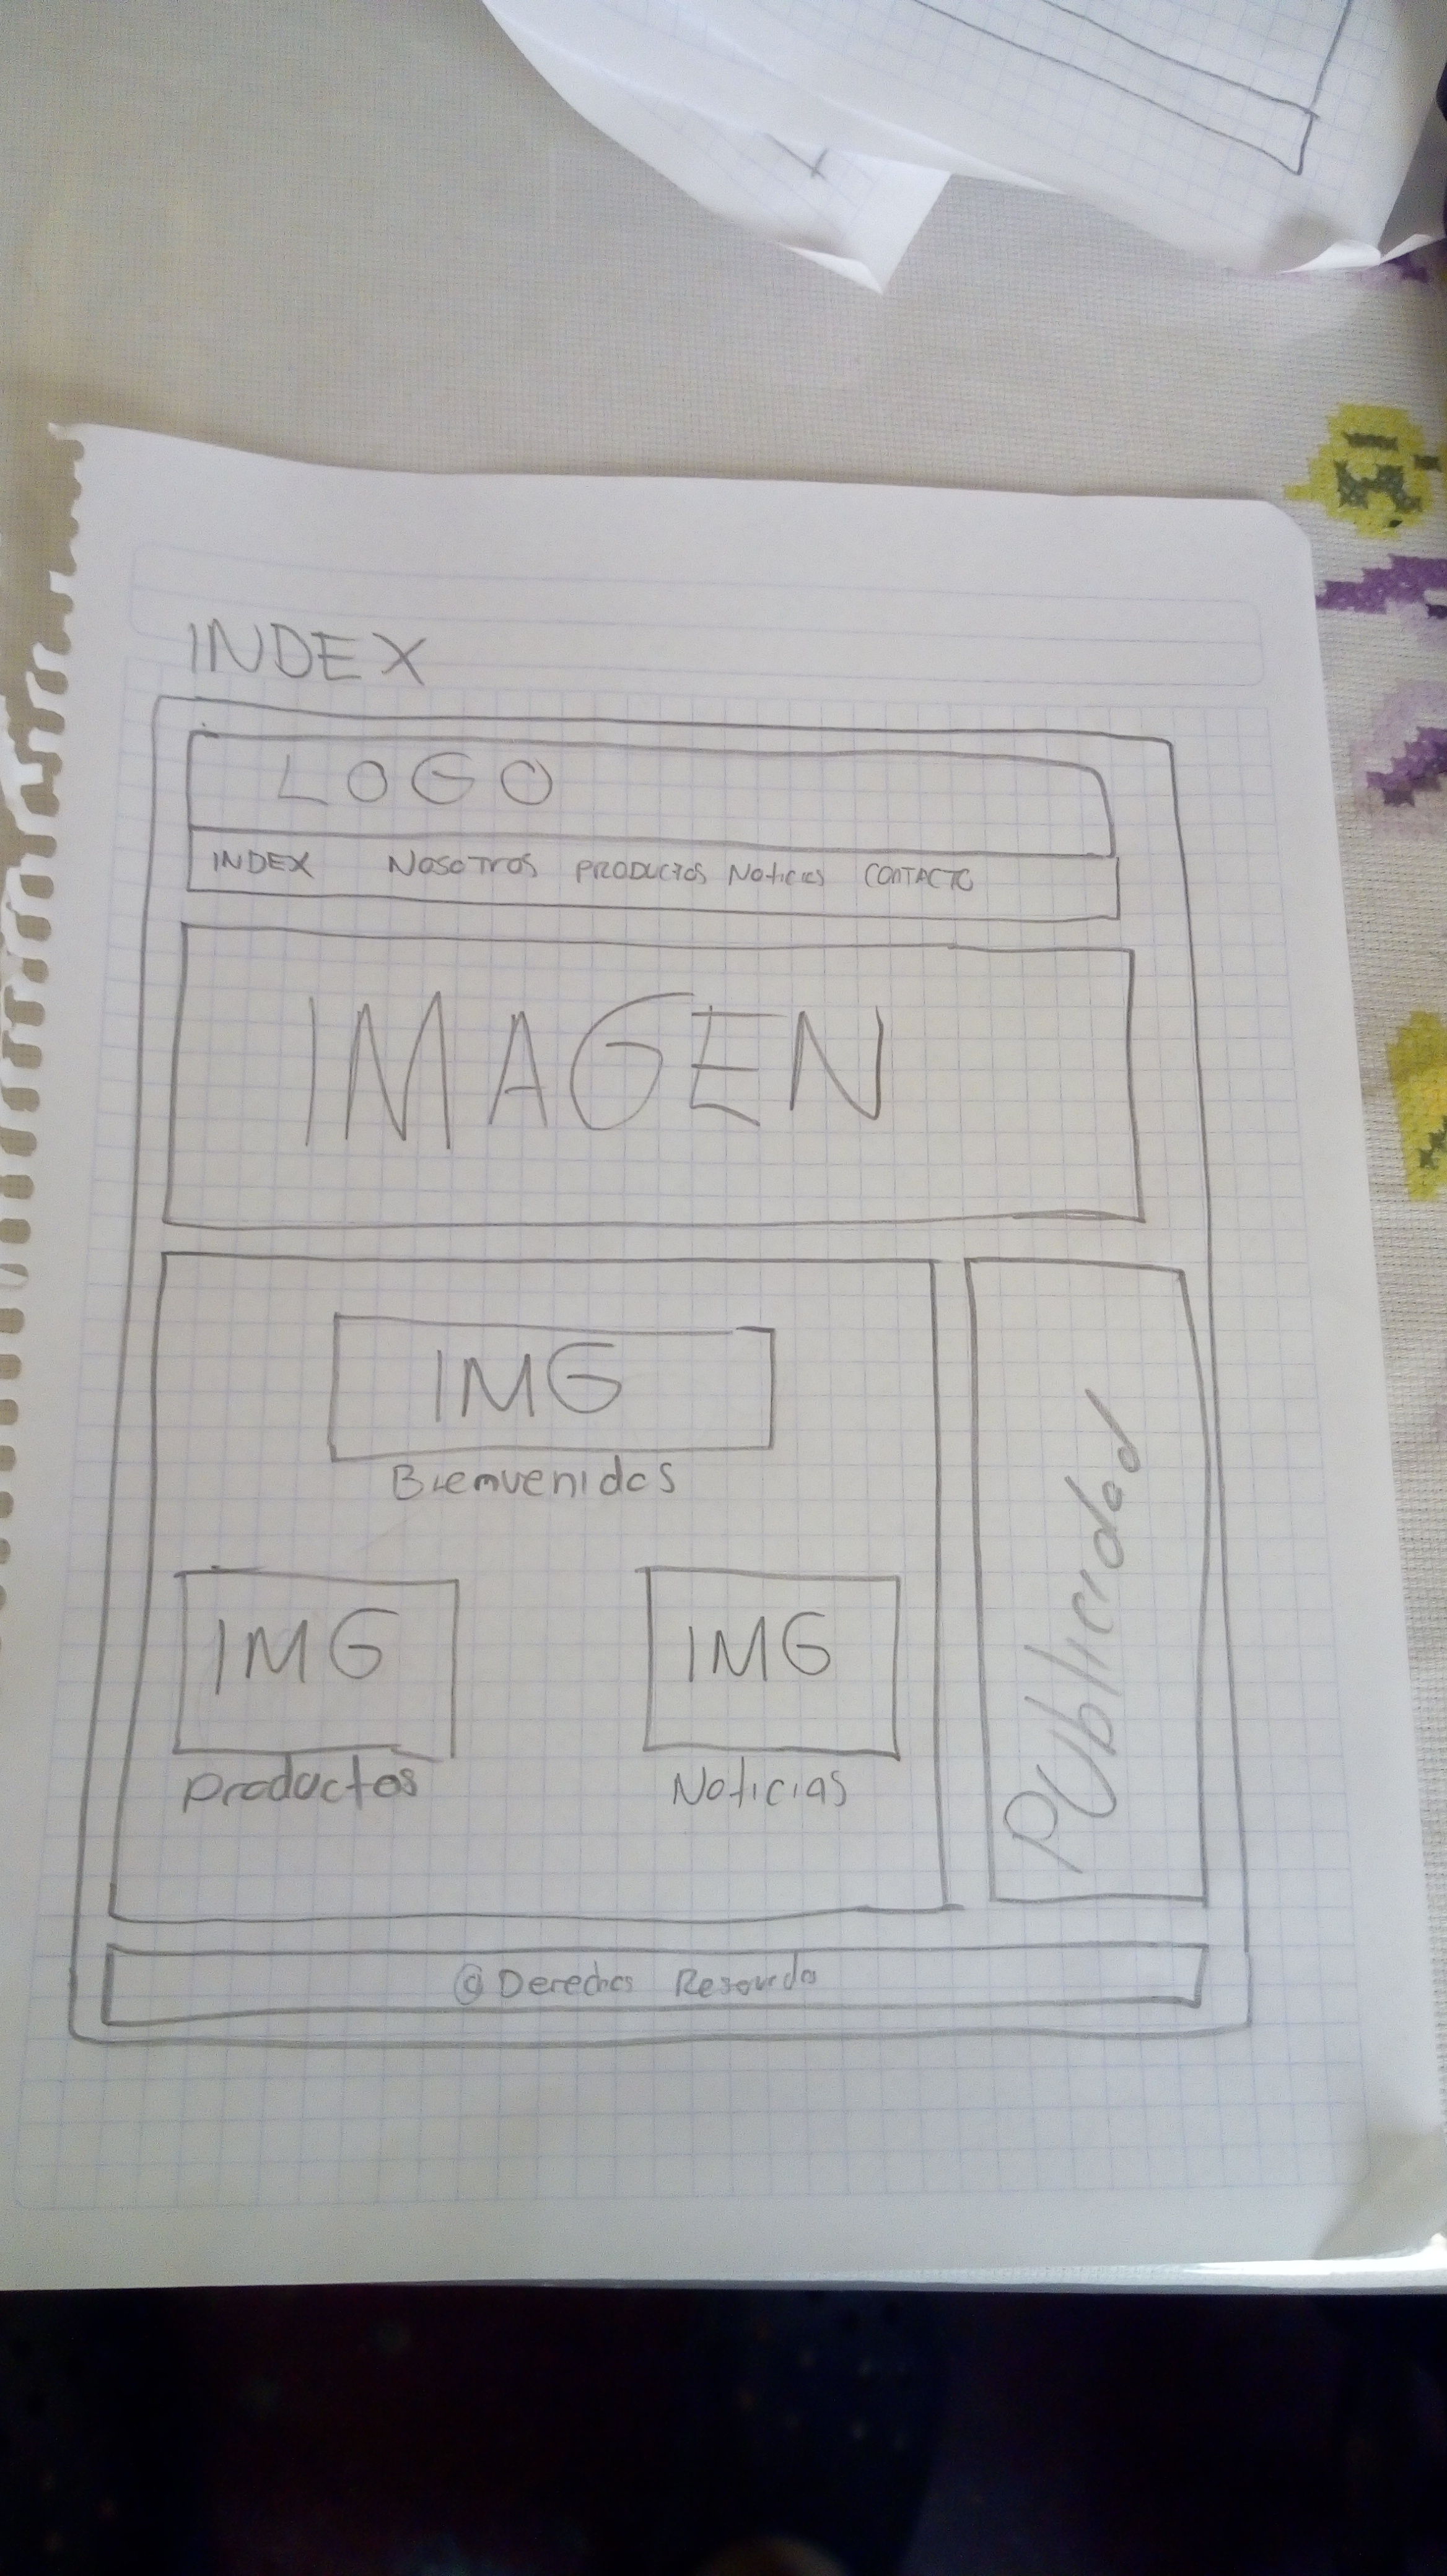 INDEX
LOGO
INDEX NOSOTROS PRODUCTOS Noticias CONTACTO
IMAGEN
IMG
Bienvenidos
IMG IMG
Productos Noticias
Publicidad
© Derechos Reservados